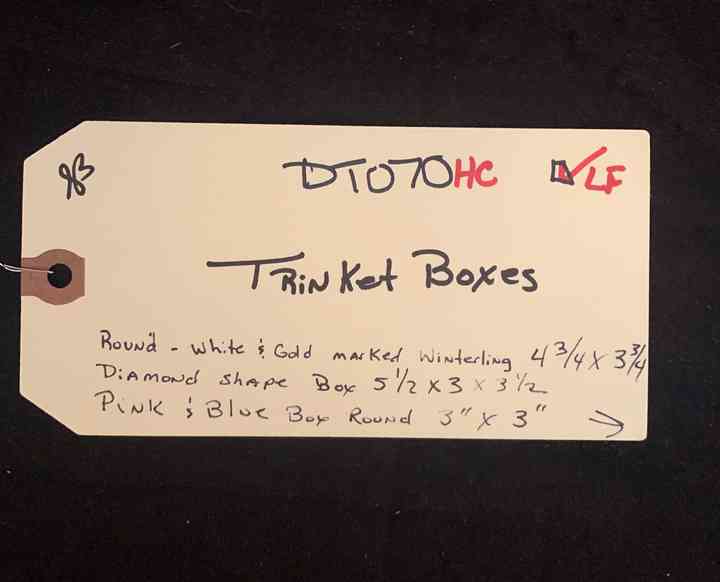 DT070HC ☑LF
Trinket Boxes
Round - White & Gold marked Winterling 4 3/4 X 3 3/4
Diamond Shape Box 5 1/2 X 3 X 3 1/2
Pink & Blue Box Round 3" X 3" →